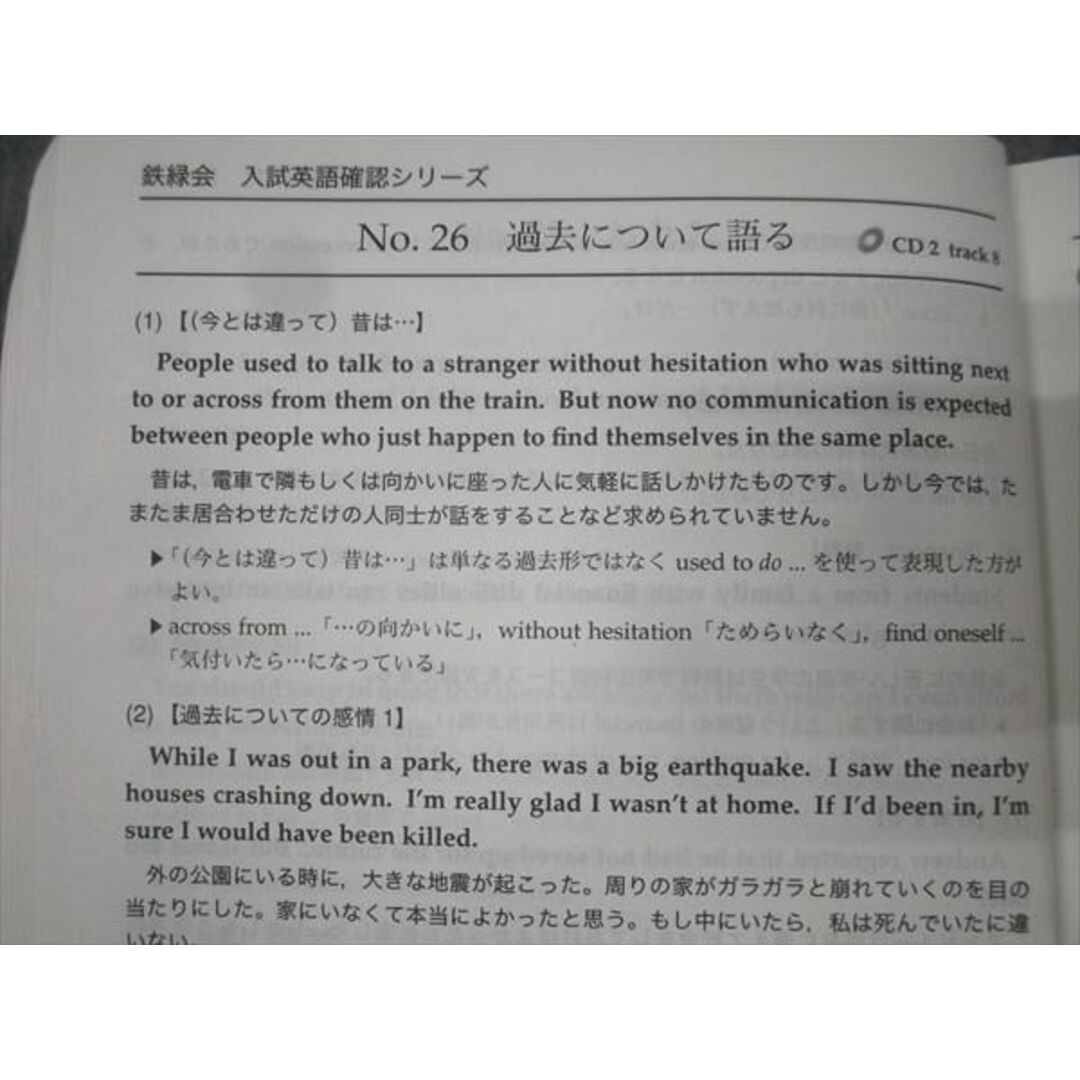 鉄緑会 入試英語確認シリーズ
No. 26 過去について語る CD 2 track 8
(1) 【(今とは違って) 昔は…】
People used to talk to a stranger without hesitation who was sitting next
to or across from them on the train. But now no communication is expected
between people who just happen to find themselves in the same place.
昔は、電車で隣もしくは向かいに座った人に気軽に話しかけたものです。しかし今では、た
またま居合わせただけの人同士が話をすることなど求められていません。
▶「(今とは違って) 昔は…」は単なる過去形ではなく used to do ... を使って表現した方が
よい。
▶across from ...「…の向かいに」, without hesitation「ためらいなく」, find oneself ...
「気付いたら…になっている」
(2) 【過去についての感情 1】
While I was out in a park, there was a big earthquake. I saw the nearby
houses crashing down. I'm really glad I wasn't at home. If I'd been in, I'm
sure I would have been killed.
外の公園にいる時に, 大きな地震が起こった。周りの家がガラガラと崩れていくのを目の
当たりにした。家にいなくて本当によかったと思う。もし中にいたら, 私は死んでいたに違
いない.